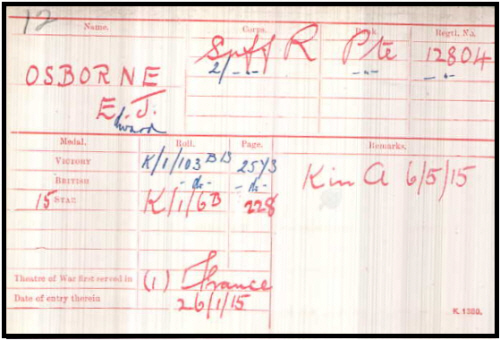 12
Name. Corps. Rank. Regtl. No.
Suff R Pte 12804
2/ -"- -"- -"-
OSBORNE
E.J.
dward
Medal. Roll. Page. Remarks.
VICTORY K/1/103 B B 2573
BRITISH -do- -do-
15 STAR K/1/6B 228
Kin A 6/5/15
Theatre of War first served in (1) France
Date of entry therein 26/1/15
K. 1380.